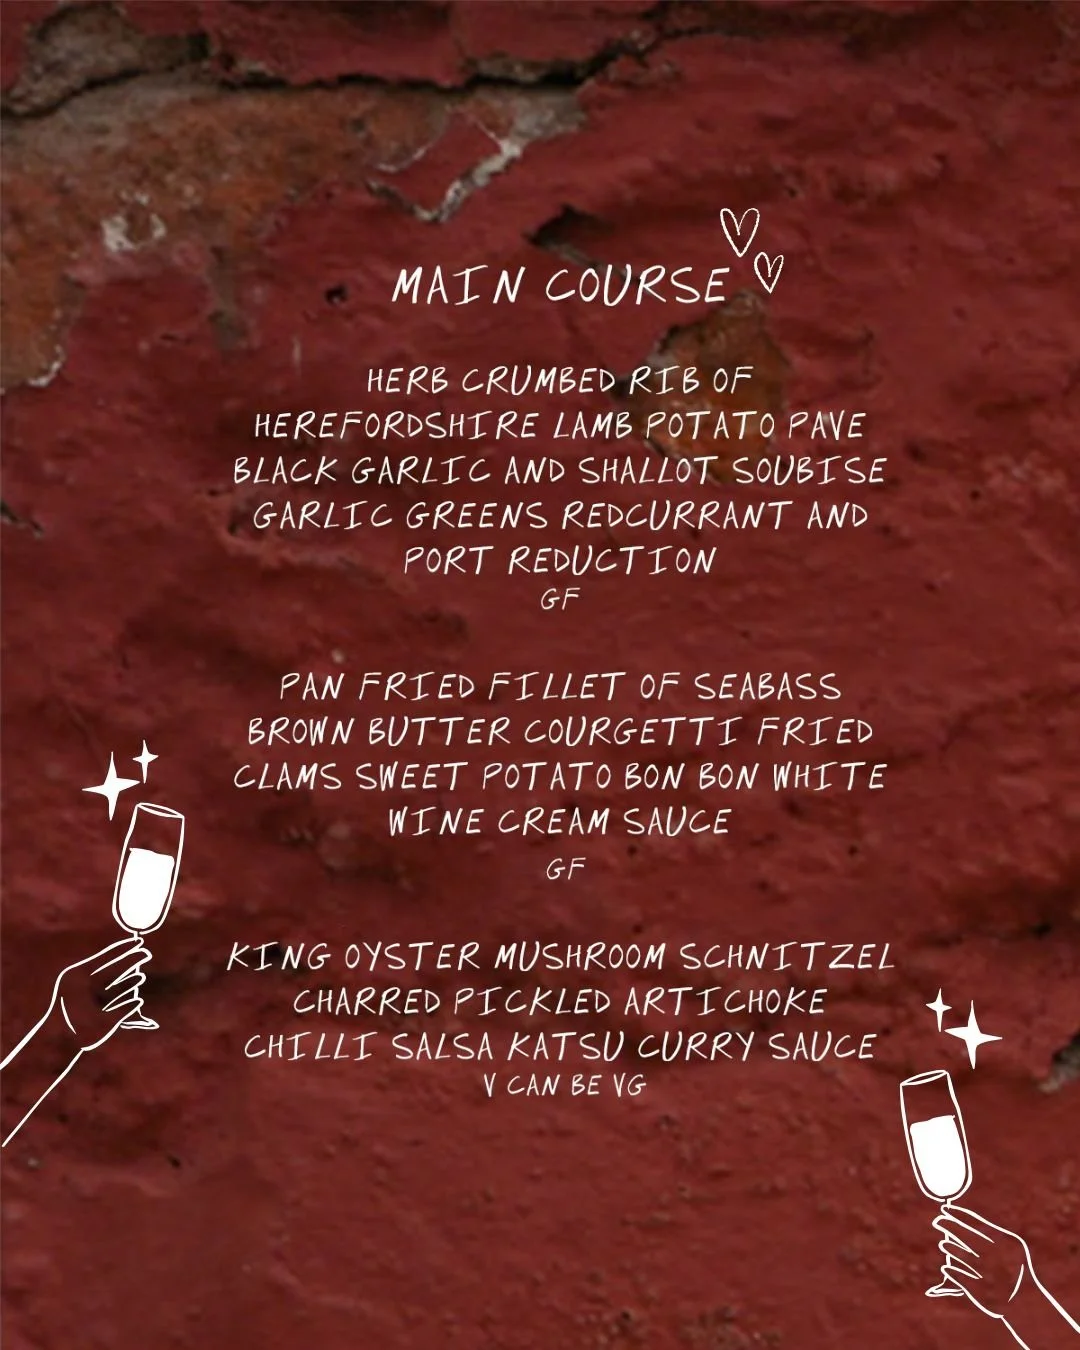 MAIN COURSE
HERB CRUMBED RIB OF
HEREFORDSHIRE LAMB POTATO PAVE
BLACK GARLIC AND SHALLOT SOUBISE
GARLIC GREENS REDCURRANT AND
PORT REDUCTION
GF
PAN FRIED FILLET OF SEABASS
BROWN BUTTER COURGETTI FRIED
CLAMS SWEET POTATO BON BON WHITE
WINE CREAM SAUCE
GF
KING OYSTER MUSHROOM SCHNITZEL
CHARRED PICKLED ARTICHOKE
CHILLI SALSA KATSU CURRY SAUCE
V CAN BE VG